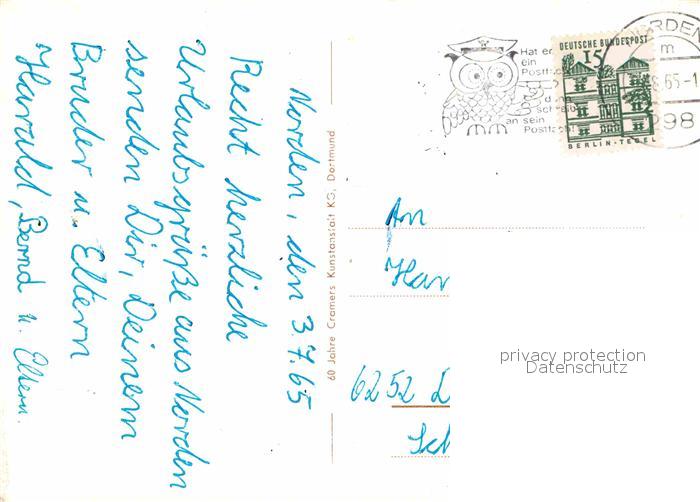 Norden, den 3.7.65
Recht herzliche
Urlaubsgrüße aus Norden
senden Dir, Deinem
Bruder u. Eltern
Harald, Bernd u. Eltern.
60 Jahre Cramers Kunstanstalt KG, Dortmund
Hat er
ein
an sein
DEUTSCHE BUNDESPOST
15
BERLIN-TEGEL
NORDEN
m
.65-1
298
An
Har
6252 D
Sch
privacy protection
Datenschutz